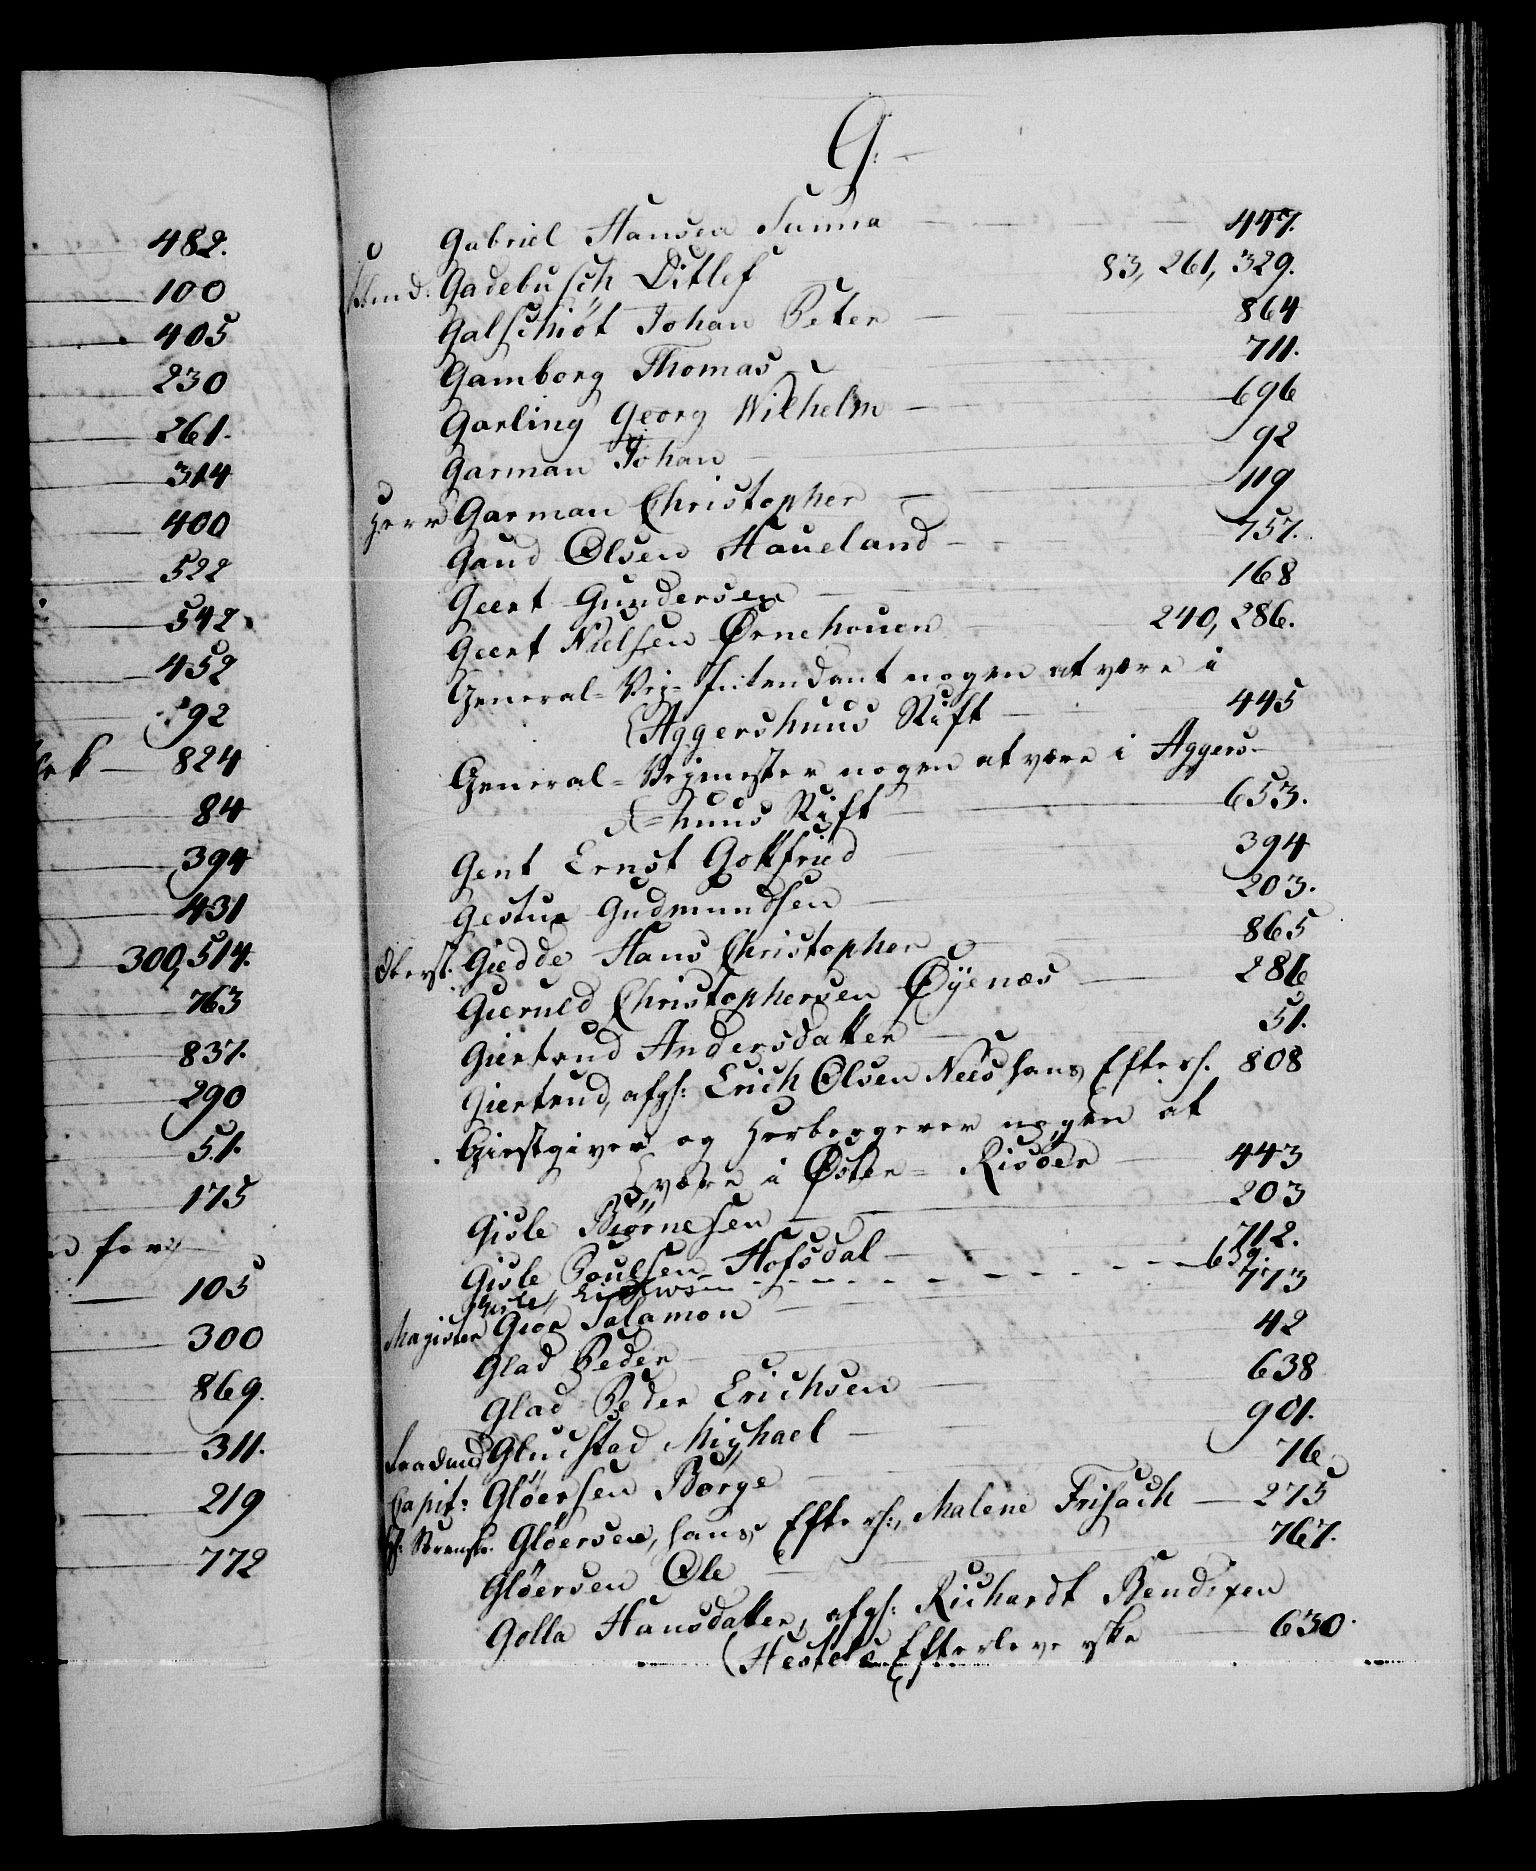 482.
100
405
230
261.
314
400
522
542.
452
592
824
84
394
431
300, 514.
763
837.
290
51.
175
for
105
300
869.
311.
219
772
G:
Gabriel Hansen Sunna 447.
Gadebusch Ditlef 83, 261, 329.
Galschiöt Johan Peter 864
Gamborg Thomas 711.
Garling Georg Wilhelm 696
Garman Johan 92
Herr Garman Christopher 119
Gaud Olsen Haueland 757.
Geert Gundersen 168
Geert Nielsen Ørnehouen 240, 286.
General-Vej-Intendant nogen at være i
Aggershuus Stift 445
General-Vejmester nogen at være i Aggers-
=huus Stift 653.
Gent Ernst Gottfried 394
Gestur Gudmundsen 203.
Oberst. Giedde Hans Christopher 865
Gieruld Christophersen Øÿenæs 286
Giertrud Andersdatter 51.
Giertrud, afgl: Erich Olsen Nees hans Efterl. 808
Giestgiver og Herbergerer nogen at
være i Øster-Risöer 443
Gisle Biörnesen 203
Gisle Poulsen Hofsdal 712.
Gisle 659.
Magister Gior Salamon 773
Glad Peder 42
Glad Peder Erichsen 638
Gluckstad Michael 901.
Capit: Glöersen Börge 76
Glöersen, hans Efterl:, Malene Frisach 275
Glöersen Ole 767.
Golla Hansdatter, afgl: Richardt Bendixen
Hestets Efterleverske 630.